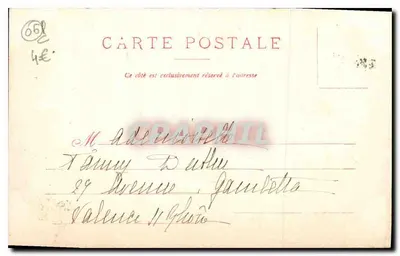 06L
4€
CARTE POSTALE
Ce côté est exclusivement réservé à l'adresse
Mademoiselle
Fanny
29 Avenue Gambetta
Valence s/ Rhône